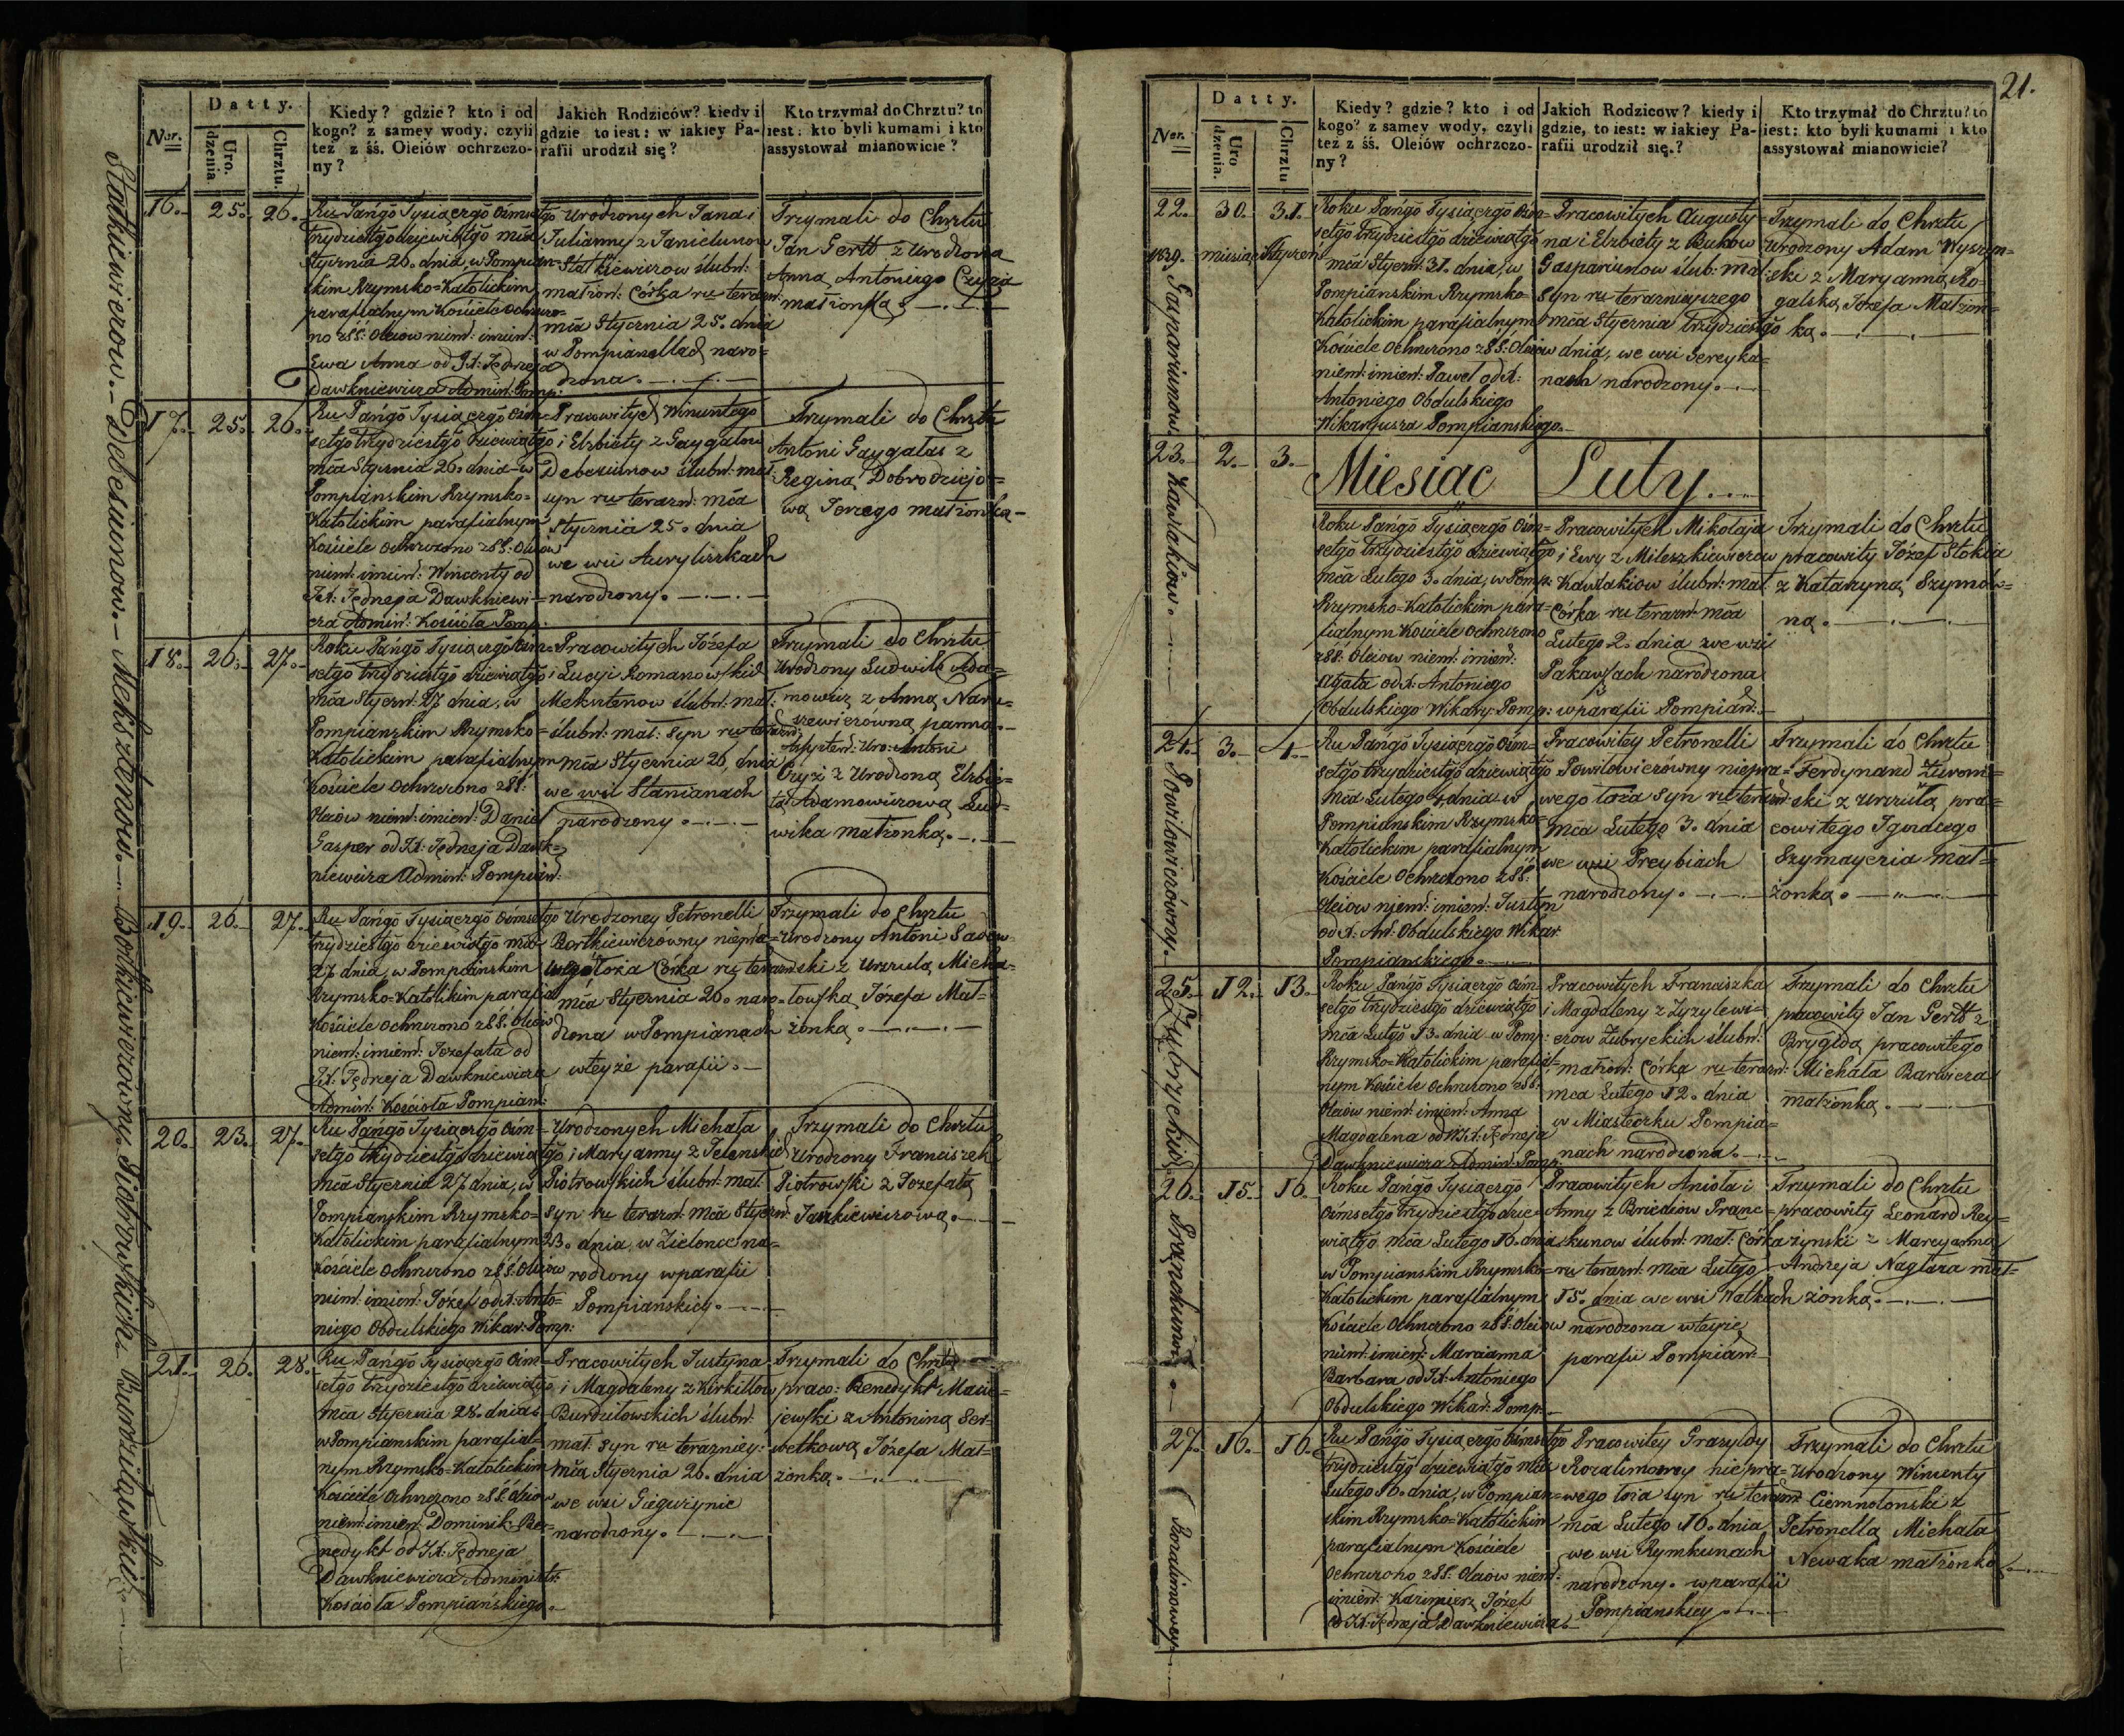 Datty.
Kiedy? gdzie? kto i od
kogo? z samey wody, czyli
też z śś. Oleiów ochrzczo-
ny?
Jakich Rodziców? kiedy i
gdzie to iest: w iakiey Pa-
rafii urodził się?
Kto trzymał do Chrztu? to
iest: kto byli kumami i kto
assystował mianowicie?
Ner.
Uro.
dzenia.
Chrztu.
16. 25. 26.
Ru Pańgo Tysiącrgo Ośmsetgo
trzydziestgo dziewiątgo mca
Stycznia 26. dnia, w Pompian-
skim Rzymsko=Katolickim
parafialnym Kościele Ochrzczo-
no z SS. Oleiow niem: imien:
Ewa Anna od JX: Jędrzeja
Dawkniewicza Admin: Pompi:
Urodzonych Jana i
Julianny z Janielunow
Statkiewiczow ślubn:
małżon: Córka ru terazn:
mca Stycznia 25. dnia
w Pompianach naro=
dzona.
Trzymali do Chrztu
Jan Gertt z Urodzoną
Anną Antoniego Czyża
małżonką
17. 25. 26.
Ru Pańgo Tysiącrgo Ośm=
setgo Trzydziestgo dziewiątgo
mca Stycznia 26. dnia w
Pompianskim Rzymsko=
Katolickim parafialnym
Kościele Ochrzczono z SS: Oleiow
niem: imien: Wincenty od
JX: Jędrzeja Dawkniewi=
cza Admin: Kościoła Pomp:
Pracowitych Wincentego
i Elzbiety z Gaygalow
Debesiunow ślubn: mał:
syn ru terazn: mca
Stycznia 25. dnia
we wsi Auryliszkach
narodzony.
Trzymali do Chrztu
Antoni Gaygalas z
Reginą Dobrodziejo=
wą Jerzego małżonką
18. 26. 27.
Roku Pańgo Tysiącrgo Ośm=
setgo trzydziestgo dziewiątgo
mca Styczn: 27 dnia, w
Pompianskim Rzymsko=
Katolickim parafialnym
Kościele Ochrzczono z SS:
Oleiow niem: imien: Daniel
Gasper od JX: Jędrzeja Dawk=
niewicza Admin: Pompian:
Pracowitych Józefa
i Lucyi Romanowskich
Meksztenow ślubn: mał:
ślubn: mał: Syn ru terazn:
mca Stycznia 26, dnia
we wsi Stanianach
narodzony.
Trzymali do Chrztu
Urodzony Ludwik Ada=
mowicz z Anną Naru=
szewiczówną panną.
Assysten: Uro: Antoni
Czyż z Urodzoną Elzbie=
tą Adamowiczową Lud=
wika małżonką.
19. 26. 27.
Ru Pańgo Tysiącrgo Ośmsetgo
trzydziestgo dziewiątgo mca
27 dnia, w Pompianskim
Rzymsko=Katolickim parafial
Kościele Ochrzczono z SS. Oleiow
niem: imien: Jozefata od
JX. Jędrzeja Dawkniewicza
Admin: Kościoła Pompian:
Urodzoney Petronelli
Bortkiewiczówny niepra=
wego łoża Córka ru terazn:
mca Stycznia 26. naro=
dzona w Pompianach
wteyże parafii.
Trzymali do Chrztu
Urodzony Antoni Sadow
ski z Urszulą Micha=
łowską Józefa Mał=
żonką.
20. 23. 27.
Ru Pańgo Tysiącrgo Ośm=
setgo trzydziestgo dziewią
tgo
mca Stycznia 27 dnia, w
Pompianskim Rzymsko=
Katolickim parafialnym
Kościele Ochrzczono z SS: Oleiow
niem: imien: Józef od X: Anto=
niego Obdulskiego Wikar: Pomp:
Urodzonych Michała
i Maryanny z Jelenskich
Piotrowskich ślubn: mał:
Syn ru terazn: mca Styczn:
23. dnia, w Zielonce na=
rodzony wparafii
Pompianskiey.
Trzymali do Chrztu
Urodzony Franciszek
Piotrowski z Jozefatą
Jankiewiczową.
21. 26. 28.
Ru Pańgo Tysiącrgo Ośm=
setgo trzydziestgo dziewiątgo
mca Stycznia 28. dnia
w Pompianskim parafial=
nym Rzymsko=Katolickim
Kościele Ochrzczono z SS. Oleiow
niem: imien: Dominik Be=
nedykt od JX. Jędrzeja
Dawkniewicza Administr:
Kościoła Pompiańskiego.
Pracowitych Justyna
i Magdaleny z Kirkiłłow
Burdzilowskich ślubn:
mał: Syn ru terazniey:
mca Stycznia 26. dnia
we wsi Gieguzynie
narodzony.
Trzymali do Chrztu
praco: Benedykt Macie=
jewski z Antoniną Ser=
wetkową Józefa Mał=
żonką.
Statkiewiczow.– Debesiunow.– Meksztenow.– Bortkiewiczówny. Piotrowskich. Burdzilowskich.
21.
Ner.
Datty.
Uro
dzenia.
Chrztu
Kiedy? gdzie? kto i od
kogo? z samey wody, czyli
też z śś. Oleiów ochrzczo-
ny?
Jakich Rodzicow? kiedy i
gdzie, to iest: w iakiey Pa-
rafii urodził się.?
Kto trzymał do Chrztu? to
iest: kto byli kumami i kto
assystował mianowicie?
22. 30. 31.
1839. miesiąc Styczeń
Roku Pańgo Tysiącrgo Ośm=
setgo Trzydziestgo dziewiątgo
mca Styczn: 31. dnia, w
Pompianskim Rzymsko=
Katolickim parafialnym
Kościele Ochrzczono z SS: Oleiow
niem: imien: Paweł od X:
Antoniego Obdulskiego
Wikaryusza Pompianskiego.
Pracowitych Augusty=
na i Elzbiety z Bukow
Gasparunow ślub: mał:
Syn ru terazniejszego
mca Stycznia trzydziestgo
dnia, we wsi Gereyka=
nach narodzony.
Trzymali do Chrztu
Urodzony Adam Wyszyn=
ski z Maryanną Ro=
galską Józefa Małżon=
ką.
Gasparunow.
23. 2. 3.
Miesiąc Luty.
Roku Pańgo Tysiącrgo Ośm=
setgo Trzydziestgo dziewiątgo
mca Lutego 3. dnia, w Pomp:
Rzymsko=Katolickim para=
fialnym Kościele Ochrzczono
z SS: Oleiow niem: imien:
Agata od X: Antoniego
Obdulskiego Wikary: Pomp:
Pracowitych Mikołaja
i Ewy z Mileszkiewiczow
Kawlakiow ślubn: mał:
Córka ru terazn: mca
Lutego 2. dnia we wsi
Pakawsach narodzona
wparafii Pompian:
Trzymali do Chrztu
pracowity Józef Stokia
z Katarzyną Szymów=
ną.
Kawlakiow.
24. 3. 4.
Ru Pańgo Tysiącrgo Ośm=
setgo trzydziestgo dziewiątgo
mca Lutego 4 dnia w
Pompianskim Rzymsko=
Katolickim parafialnym
Kościele Ochrzczono z SS:
Oleiow niem: imien: Justyn
od X: Ant: Obdulskiego Wikar:
Pompianskiego.
Pracowitey Petronelli
Powilowiczówny niepra=
wego łoża Syn ru terazn:
mca Lutego 3. dnia
we wsi Preybiach
narodzony.
Trzymali do Chrztu
Ferdynand Żurom=
ski z Urszulą pra=
cowitego Ignacego
Szymayczia mał=
żonką.
Powilowiczówny.
25. 12. 13.
Roku Pańgo Tysiącrgo Ośm
setgo trzydziestgo dziewiątgo
mca Lutgo 13. dnia w Pomp:
Rzymsko=Katolickim parafial=
nym Kościele Ochrzczono z SS:
Oleiow niem: imien: Anna
Magdalena od WJX: Jędrzeja
Dawkniewicza Admin: Pomp:
Pracowitych Franciszka
i Magdaleny z Zyzylewi=
czow Zubryckich ślubn:
małżon: Córka ru terazn:
mca Lutego 12. dnia
w Miasteczku Pompia=
nach narodzona.
Trzymali do Chrztu
pracowity Jan Gertt z
Brygidą pracowitego
Michała Barwicza
małżonką.
26. 15. 16.
Roku Pańgo Tysiącrgo
Ośmsetgo Trzydziestgo dzie=
wiątgo mca Lutego 16. dnia
w Pompianskim Rzymsko=
Katolickim parafialnym
Kościele Ochrzczono z SS: Oleiow
niem: imien: Marcianna
Barbara od JX: Antoniego
Obdulskiego Wikar: Pomp:
Pracowitych Anioła i
Anny z Briedziow Pranc=
kunow ślubn: mał: Córka
ru terazn: mca Lutego
15. dnia we wsi Wałkach
narodzona wteyże
parafii Pompian:
Trzymali do Chrztu
pracowity Leonard Rey=
zynski z Marcyanną
Andrzeja Naglara mał=
żonką.
27. 16. 16.
Ru Pańgo Tysiącrgo Ośmsetgo
trzydziestgo dziewiątgo mca
Lutego 16. dnia, w Pompian=
skim Rzymsko=Katolickim
parafialnym Kościele
Ochrzczono z SS. Oleiow niem:
imien: Kazimierz Józef
od JX: Jędrzeja Dawkniewicza
Pracowitey Grazyldy
Rozalimowey niepra=
wego łoża syn ru terazn:
mca Lutego 16. dnia
we wsi Rymkunach
narodzony. wparafii
Pompianskiey.
Trzymali do Chrztu
Urodzony Wincenty
Ciemnołonski z
Petronellą Michała
Newaka małżonką.
Rozalimowey